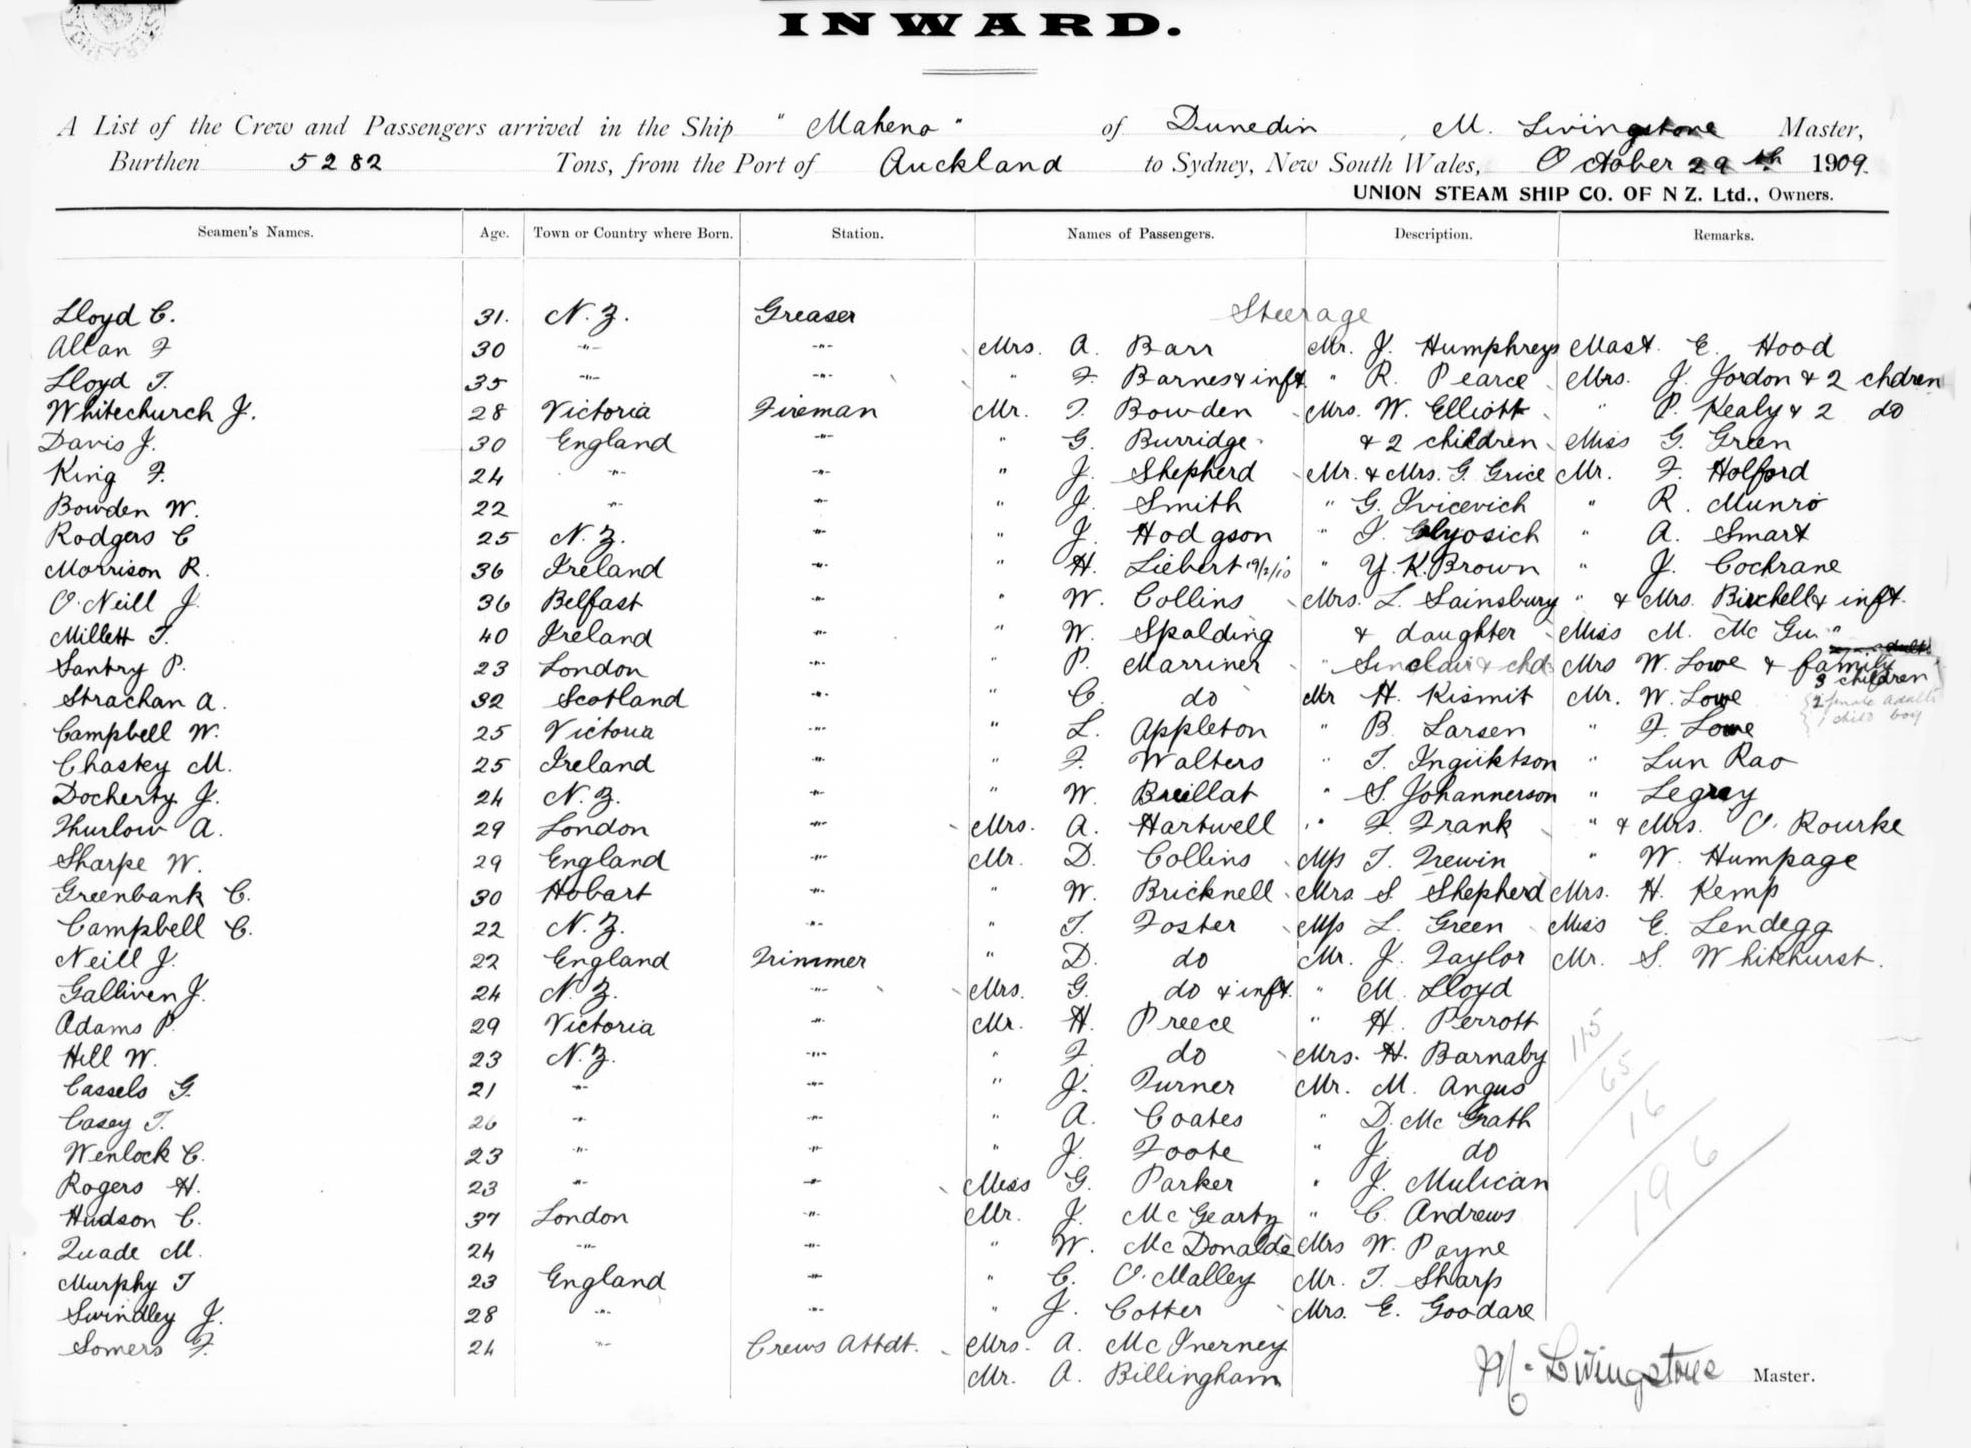 INWARD.
A List of the Crew and Passengers arrived in the Ship "Maheno" of Dunedin, M. Livingstone Master,
Burthen 5282 Tons, from the Port of Auckland to Sydney, New South Wales, October 29th 1909.
UNION STEAM SHIP CO. OF N Z. Ltd., Owners.
Seamen's Names. Age. Town or Country where Born. Station. Names of Passengers. Description. Remarks.
Lloyd C. 31. N.Z. Greaser Steerage
Allan F 30 " " Mrs. A. Barr Mr. J. Humphreys Mast. E. Hood
Lloyd T. 35 " " " F. Barnes & inft. " R. Pearce Mrs. J. Jordon & 2 chdren
Whitechurch J. 28 Victoria Fireman Mr. T. Bowden Mrs. W. Elliott " P. Kealy & 2 do
Davis J. 30 England " " G. Burridge & 2 children Miss G. Green
King F. 24 " " " J. Shepherd Mr. & Mrs. G. Grice Mr. F. Holford
Bowden W. 22 " " " J. Smith " G. Ivicevich " R. Munro
Rodgers C 25 N.Z. " " J. Hodgson " I. " A. Smart
Morrison R. 36 Ireland " " H. Liebert 19/2/10 " Y. K. Brown " J. Cochrane
O'Neill J. 36 Belfast " " W. Collins Mrs. L. Sainsbury " & Mrs. Birchell & inft.
Millett T. 40 Ireland " " W. Spalding & daughter Miss M. Mc
Santry P. 23 London " " P. Marriner " Sinclair & chd Mrs W. Lowe & family
3 children
Strachan A. 32 Scotland " " C. do Mr H. Kismit Mr. W. Lowe
2 female adults
1 child boy
Campbell W. 25 Victoria " " L. Appleton " B. Larsen " F. Lowe
Chastey M. 25 Ireland " " F. Walters " T. " Lun Rao
Docherty J. 24 N.Z. " " W. Breillat " S. Johannerson " Legray
Thurlow A. 29 London " Mrs. A. Hartwell " F. Frank " & Mrs. O. Rourke
Sharpe W. 29 England " Mr. D. Collins M/s T. Trewin " W. Humpage
Greenbank C. 30 Hobart " " W. Bricknell Mrs. S. Shepherd Mrs. H. Kemp
Campbell C. 22 N.Z. " " T. Foster M/s L. Green Miss E. Lendegg
Neill J. 22 England Trimmer " D. do Mr. J. Taylor Mr. S. Whitehurst.
Galliven J. 24 N.Z. " Mrs. G. do & inft. " M. Lloyd
Adams P. 29 Victoria " Mr. H. Preece " H. Perrott
Hill W. 23 N.Z. " " F. do Mrs. H. Barnaby
Cassels G. 21 " " " J. Turner Mr. M. Angus
Casey T. 26 " " " A. Coates " D. Mc Grath
Wenlock C. 23 " " " J. Foote " J. do
Rogers H. 23 " " Miss G. Parker " J. Mulican
Hudson C. 37 London " Mr. J. Mc Gearty " C. Andrews
Quade M. 24 " " " W. Mc Donalde Mrs W. Payne
Murphy T 23 England " " C. O'Malley Mr. T. Sharp
Swindley J. 28 " " " J. Cotter Mrs. E. Goodare
Somers F. 24 " Crews Attdt. Mrs. A. Mc Inerney
Mr. A. Billingham
115
65
16
196
M. Livingstone Master.